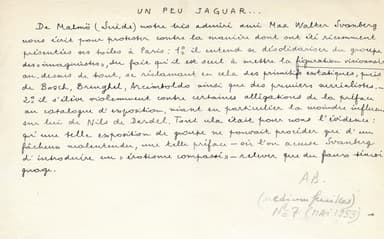 UN PEU JAGUAR...
De Malmö (Suède) notre très admiré ami Max Walter Svanberg
nous écrit pour protester contre la manière dont ont été récemment
présentées ses toiles à Paris: 1º il entend se désolidariser du groupe
des "imaginistes", du fait qu'il est seul à mettre la figuration visionnaire
au-dessus de tout, se réclamant en cela des primitifs extatiques, puis
de Bosch, Brueghel, Arcimboldo ainsi que des premiers surréalistes. –
2º il s'élève violemment contre certaines allégations de la préface
au catalogue d'exposition, niant en particulier la moindre influence
sur lui de Nils de Dardel. Tout cela était pour nous l'évidence:
qu'une telle exposition de groupe ne pouvait procéder que d'un
fâcheux malentendu, une telle préface – où l'on accuse Svanberg
d'introduire un "érotisme compassé" – relever que du faux témoi-
gnage.
A.B.
(medium feuilles)
Nº 7 (mai 1953)